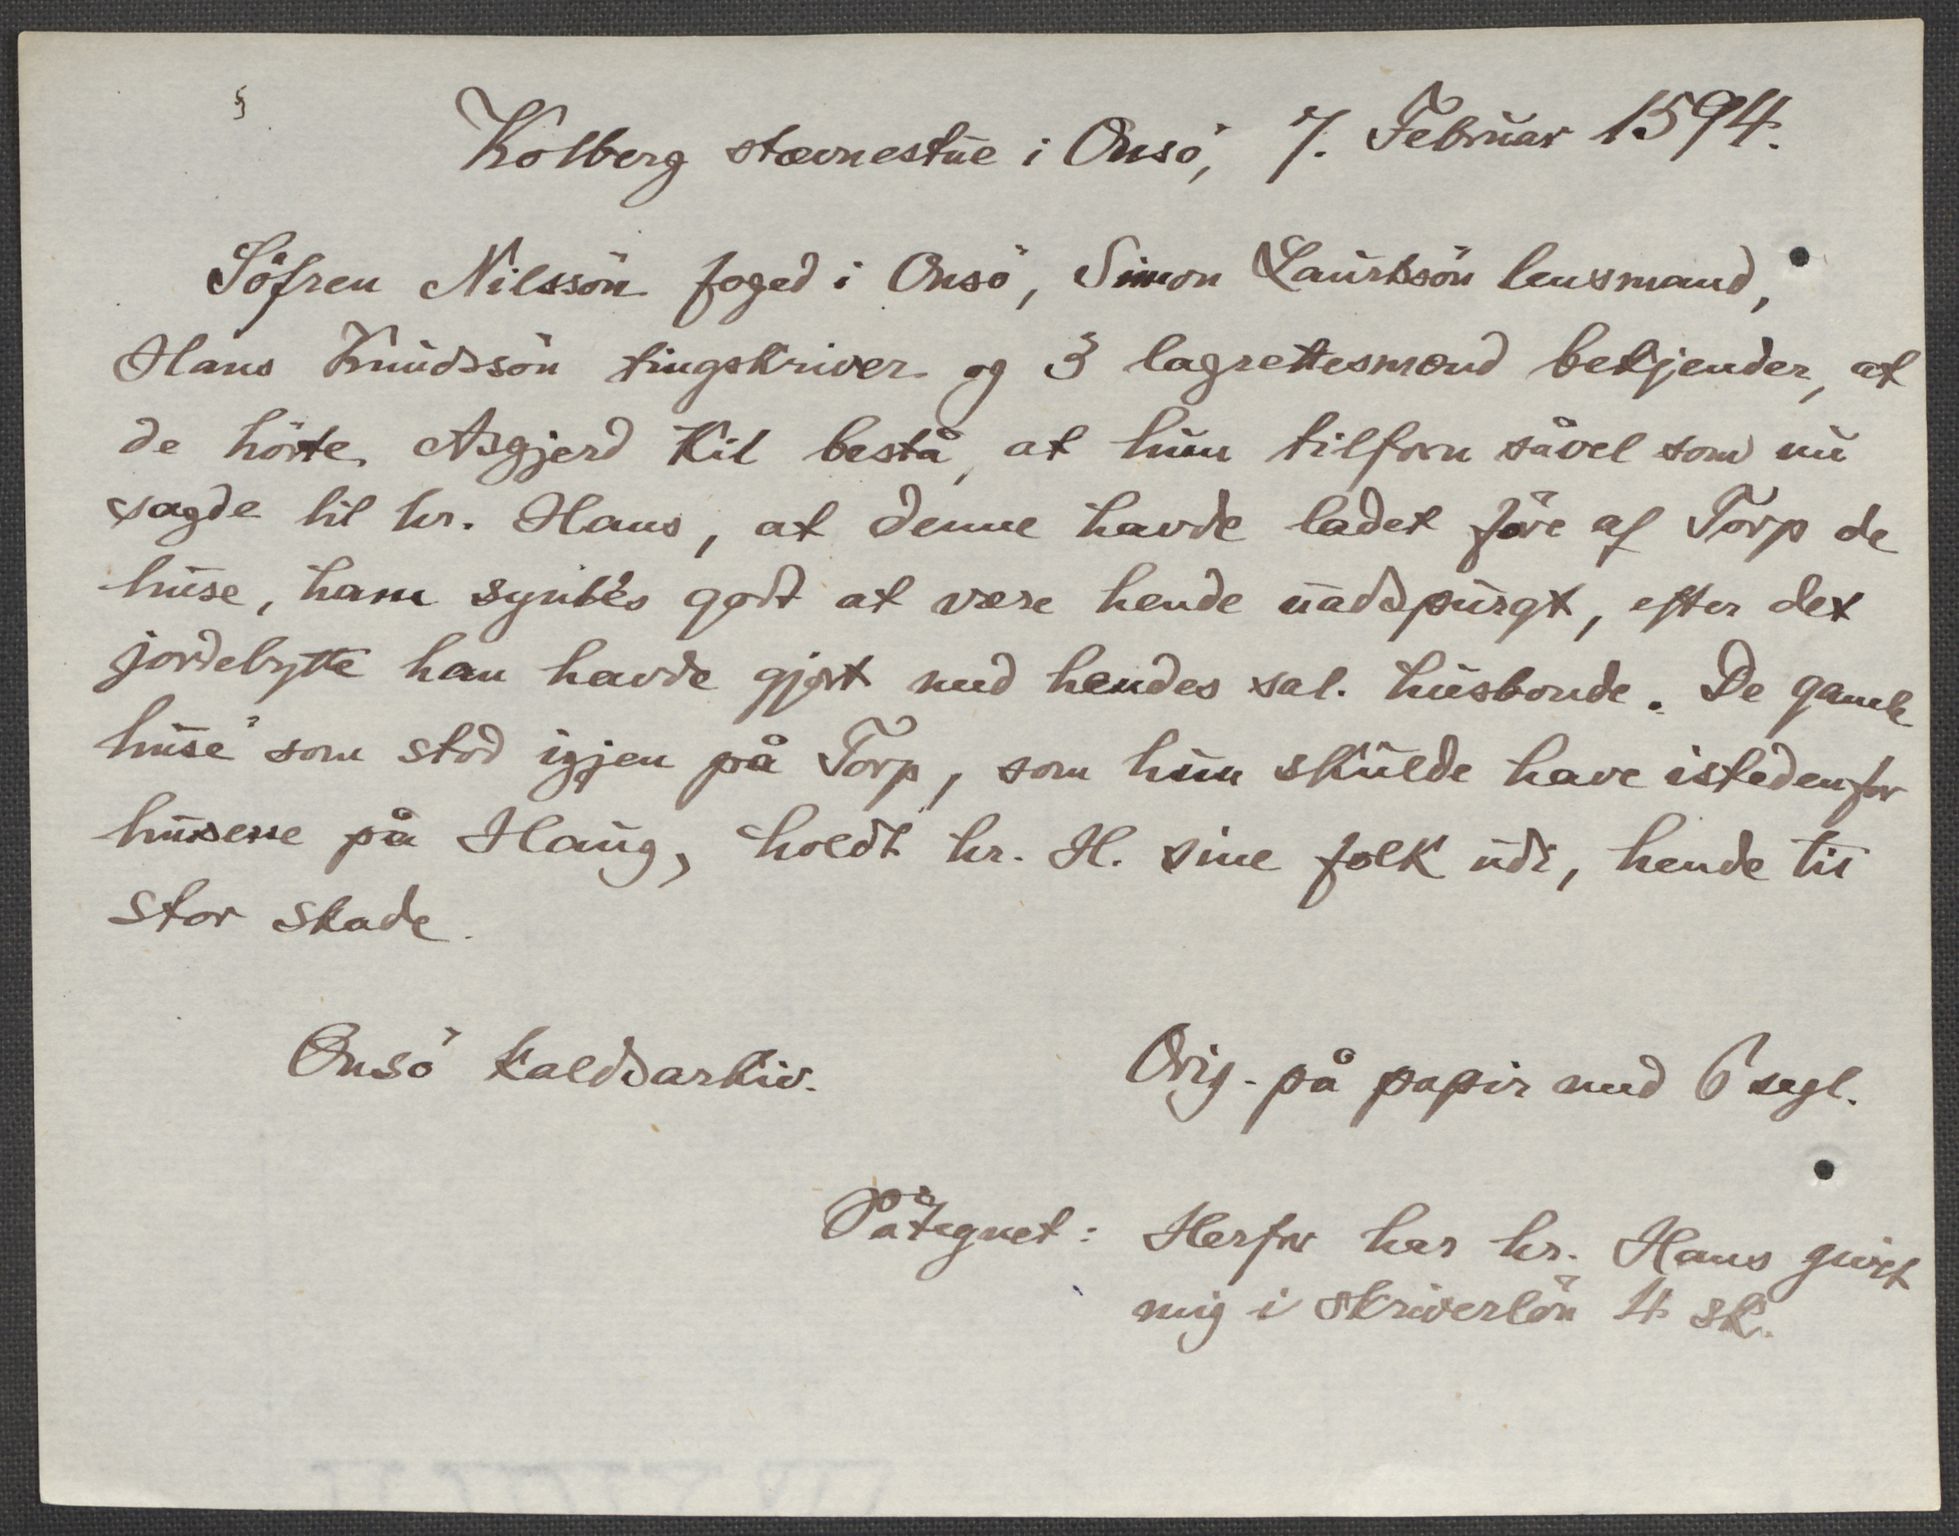 §
Kolberg stævnestue i Onsö, 7. Februar 1594.
Söfren Nilssön foged i Onsö, Simon Lauritssön lensmand,
Hans Knudssön tingskriver og 3 lagrettesmænd bekjender, at
de hörte Asgjerd Kil bestå, at hun tilforn såvel som nu
sagde til hr. Hans, at denne havde ladet före af Torp de
huse, ham syntes godt at være hende uadspurgt, efter det
jordebytte han havde gjort med hendes sal. husbonde. De gamle
huse som stod igjen på Torp, som hun skulde have istedenfor
husene på Haug, holdt hr. H. sine folk udi, hende til
stor skade.
Onsö kaldsarkiv.
Orig. på papir med 6 segl.
Påtegnet: Herfor har hr. Hans givet
mig i skriverlön 4 sk.